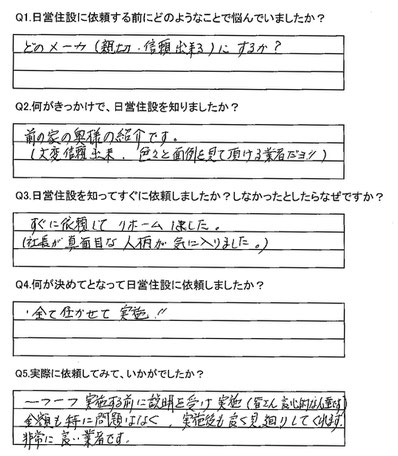 Q1.日営住設に依頼する前にどのようなことで悩んでいましたか？
どのメーカ(親切・信頼出来る)にするか？
Q2.何がきっかけで、日営住設を知りましたか？
前の家の奥様の紹介です。
(大変信頼出来、色々と面倒を見て頂ける業者だヨ!!)
Q3.日営住設を知ってすぐに依頼しましたか？しなかったとしたらなぜですか？
すぐに依頼してリホームしました。
(社長が真面目な人柄が気に入りました。)
Q4.何が決めてとなって日営住設に依頼しましたか？
・全て任かせて実施!!
Q5.実際に依頼してみて、いかがでしたか？
一つ一つ実施する前に説明を受け実施(皆さん良心的な人達です)
金額も特に問題はなく、実施後も良く見廻りしてくれます。
非常に良い業者です。